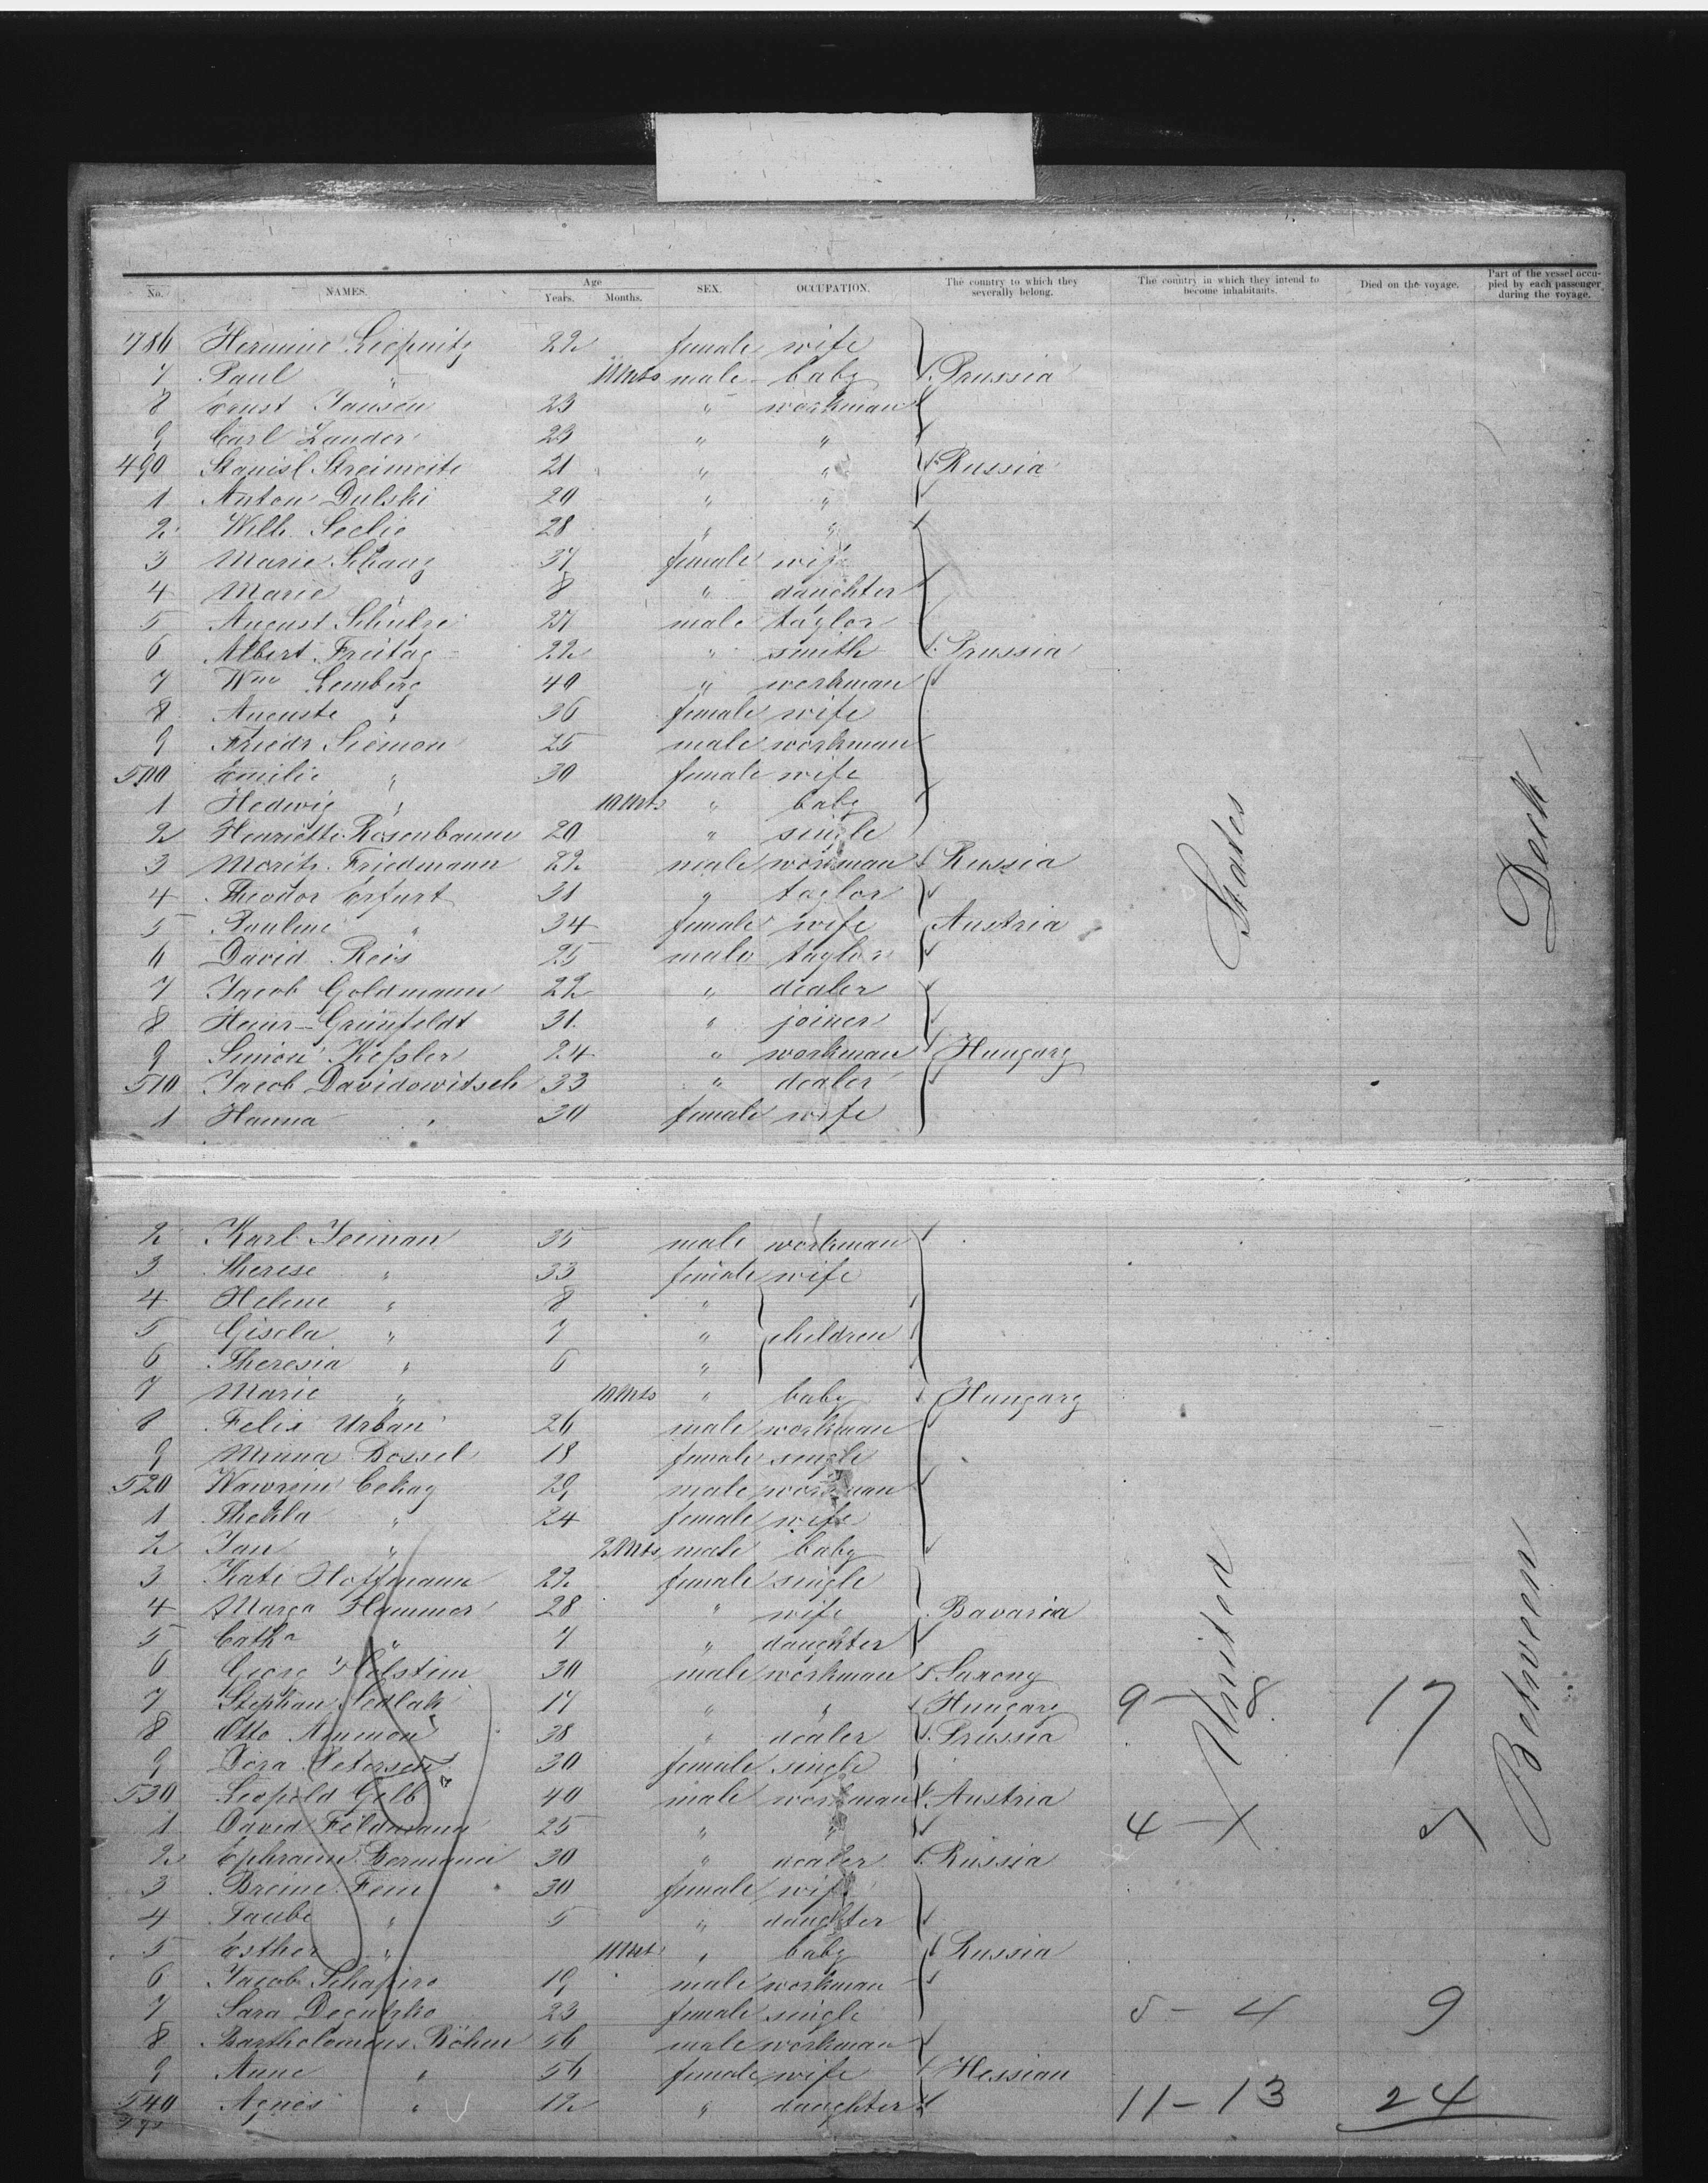 No. NAMES. Age Years. Months. SEX. OCCUPATION. The country to which they severally belong. The country in which they intend to become inhabitants. Died on the voyage. Part of the vessel occupied by each passenger during the voyage.
486 Hermine Liepnitz 22 female wife
7 Paul " 11 Mts male baby Prussia
8 Ernst Jansen 23 " workman
9 Carl Zander 23 " "
490 Stanisl. Streimeite 21 " " Russia
1 Anton Dulski 20 " "
2 Wilh. 28 " "
3 Marie Schanz 37 female wife
4 Marie " 8 " daughter
5 August Schulze 27 male taylor
6 Albert Freitag 22 " smith Prussia
7 Wm Lemberg 40 " workman
8 Auguste " 36 female wife
9 Friedr. Siemon 25 male workman
500 Emilie " 30 female wife
1 Hedwig " 10 Mts " baby
2 Henriette Rosenbaum 20 " single
3 Moritz Friedmann 22 male workman Russia
4 Theodor Erfurt 31 " taylor
5 Pauline " 34 female wife Austria
6 David Reis 25 male taylor
7 Jacob Goldmann 22 " dealer
8 Heinr. Grünfeldt 31 " joiner
9 Simon Kessler 24 " workman Hungary
510 Jacob Davidowitsch 33 " dealer
1 Hanna " 30 female wife
2 Karl 35 male workman
3 Therese " 33 female wife
4 Helene " 8 "
5 Gisela " 7 " children
6 Theresia " 6 "
7 Marie " 10 Mts " baby Hungary
8 Felix Urban 26 male workman
9 Minna Bossel 18 female single
520 Wawrzin Cekay 29 male workman
1 Thekla " 24 female wife
2 Jan " 2 Mts male baby
3 Kati Hoffmann 22 female single
4 Marga Hammer 28 " wife Bavaria
5 Catha " 7 " daughter
6 Georg Holstein 30 male workman Saxony
7 Stephan Sedlak 17 " " Hungary 9 - 8 17
8 Otto Ammon 38 " dealer Prussia
9 Dora Petersen 30 female single
530 Leopold Gelb 40 male workman Austria
1 David Feldmann 25 " " 4 - 1 5
2 Ephraim Bermann 30 " dealer Russia
3 Breine Fein 30 female wife
4 Taube " 5 " daughter
5 Esther " 11 Mts " baby Russia
6 Jacob Schapiro 19 male workman
7 Sara 23 female single 5 - 4 9
8 Bartholomäus Böhm 56 male workman
9 Anne " 56 female wife Hessian
540 Agnes " 12 " daughter 11 - 13 24
United States
Between Deck